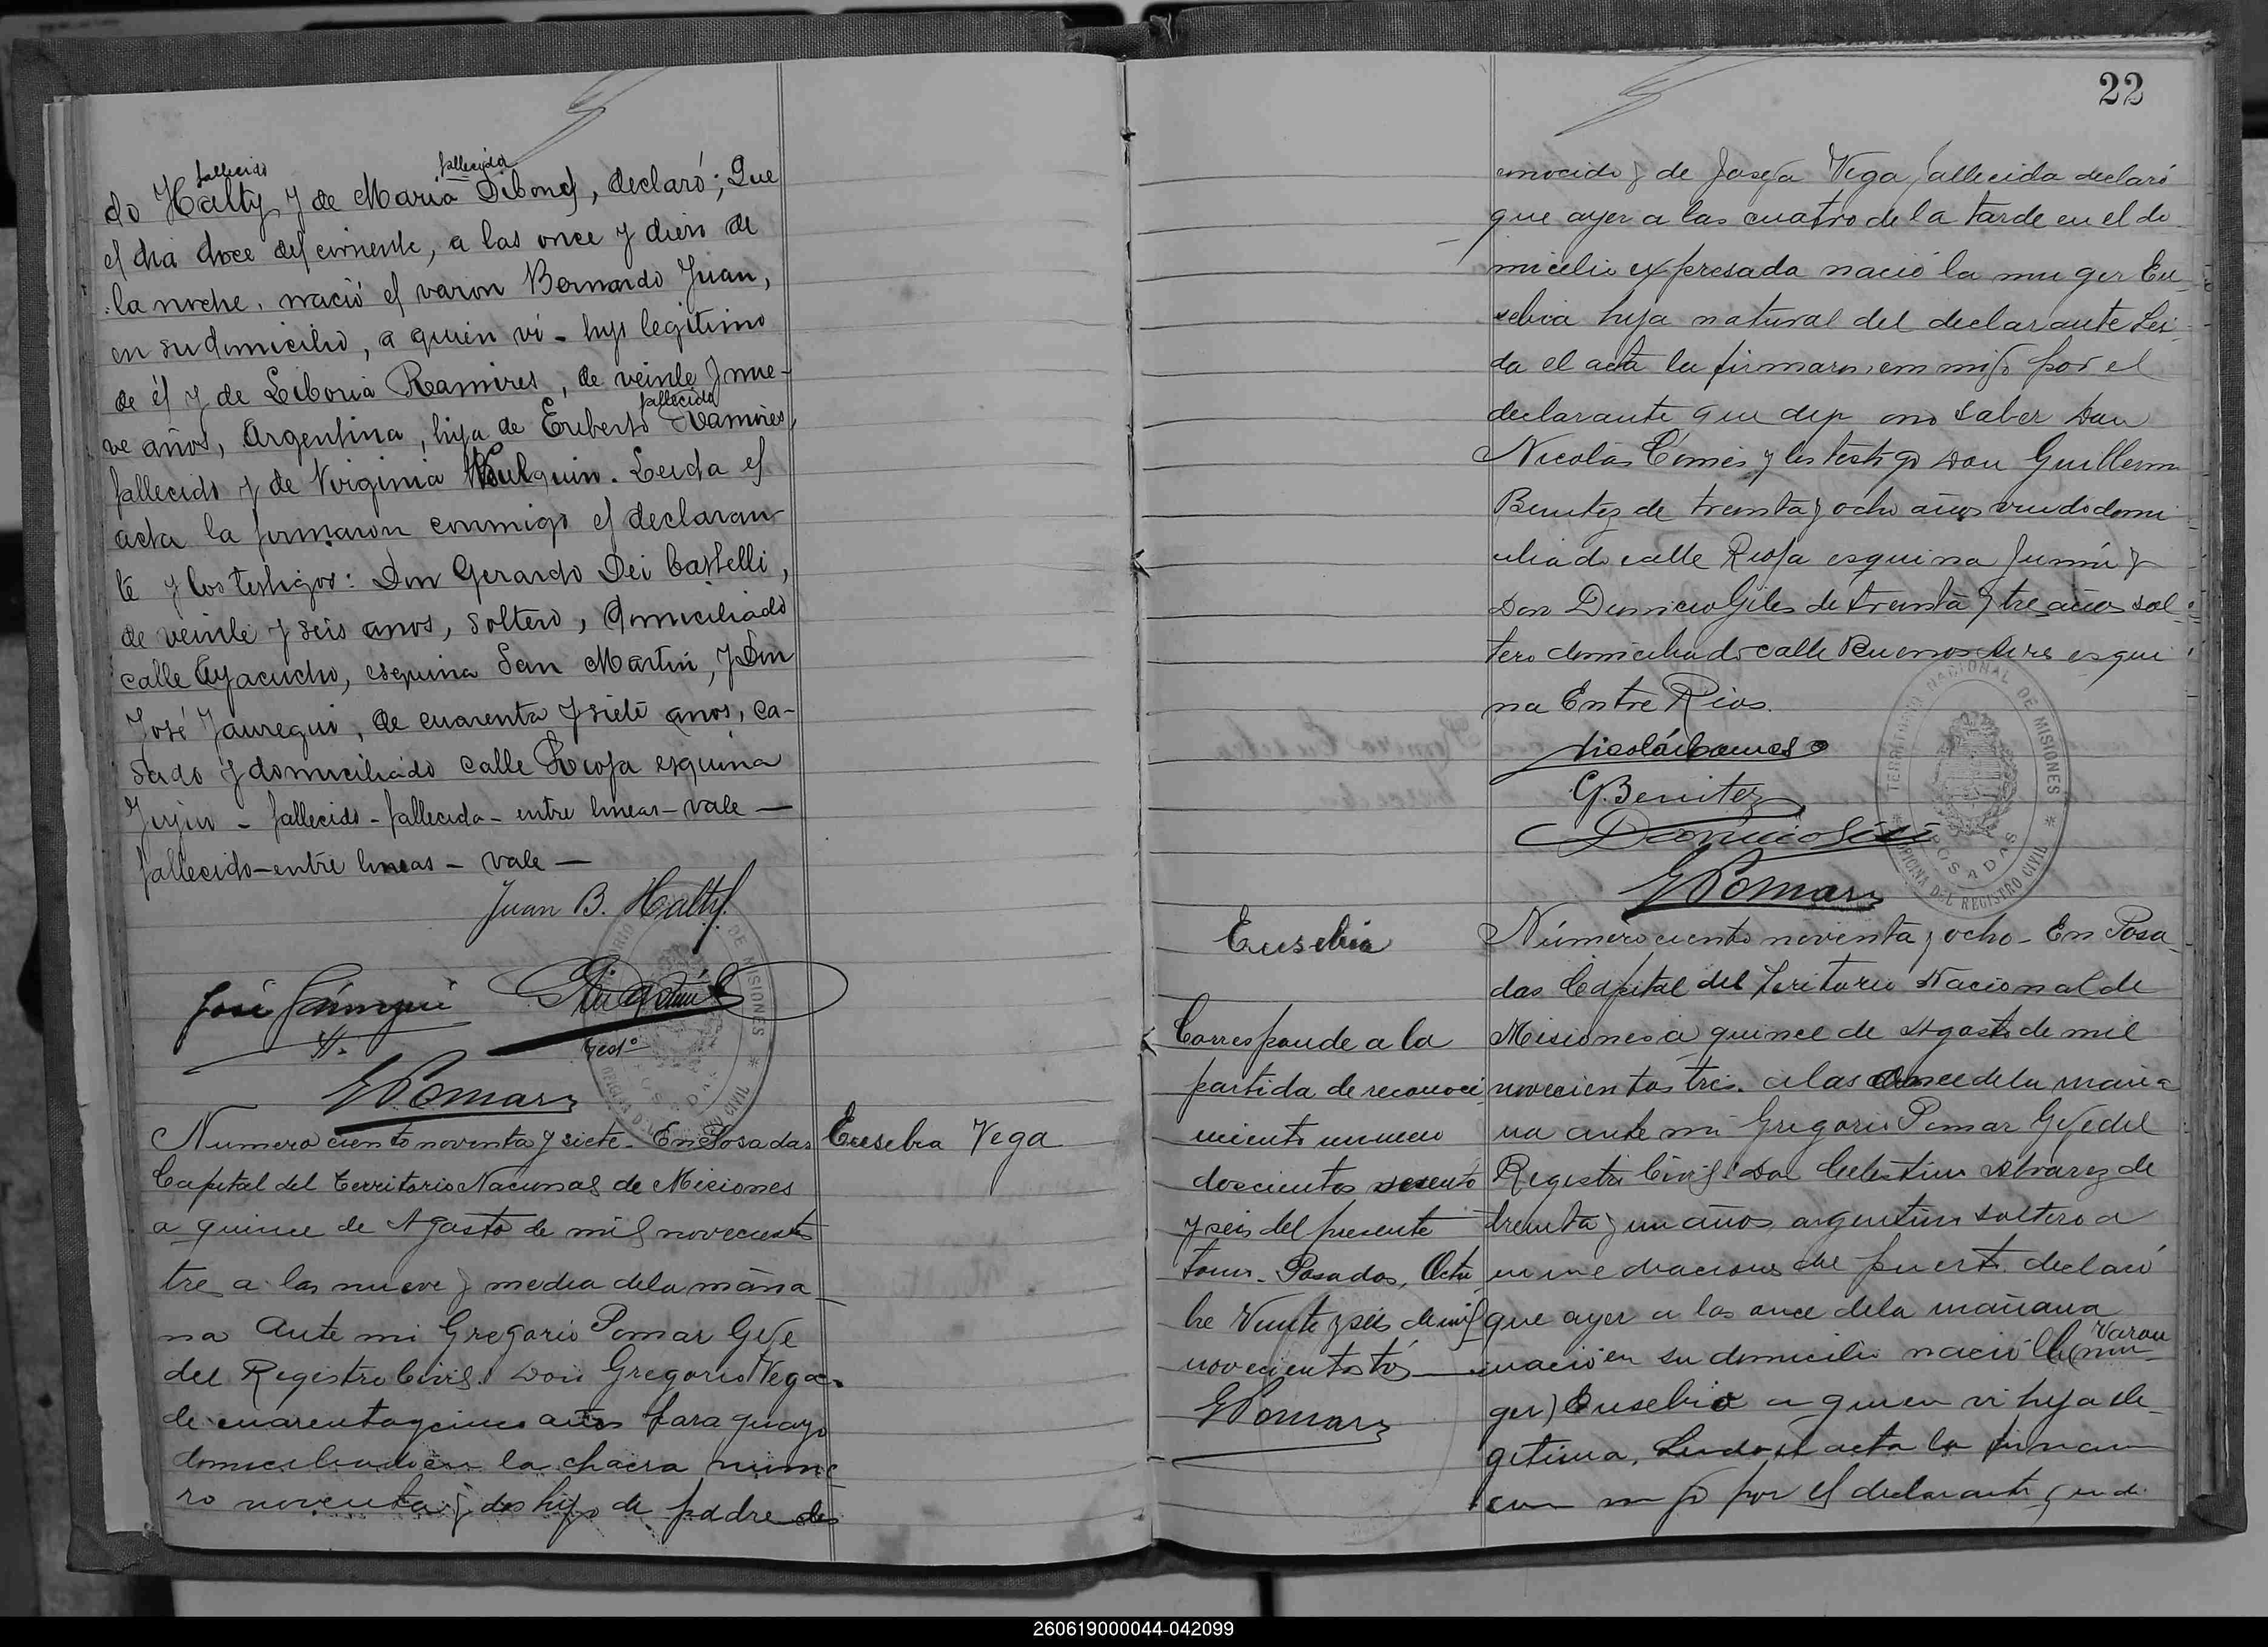 do Halty fallecido y de Maria Dibons fallecida, declaró; Que
el dia doce del corriente, a las once y diez de
la noche, nació el varon Bernardo Juan,
en su domicilio, a quien vi - hijo legitimo
de él y de Liboria Ramires, de veinte y nue-
ve años, Argentina, hija de Eriberto fallecido Ramires,
fallecido y de Virginia . Leida el
acta la firmaron conmigo el declaran-
te y los testigos: Don Gerardo Dei Castelli,
de veinte y seis anos, soltero, domiciliado
calle Ayacucho, esquina San Martin, y Don
José Jauregui, de cuarenta y siete anos, ca-
sado y domiciliado calle Rioja esquina
Jujuy - fallecido - fallecida - entre lineas - vale —
fallecido - entre lineas - vale —
Juan B. Halty
José Jáuregui
GPomar
Numero ciento noventa y siete. En Posadas
Capital del Territorio Nacional de Misiones
a quince de Agosto de mil novecientos
tres a las nueve y media dela maña
na Ante mi Gregorio Pomar Gefe
del Registro Civil. Don Gregorio Vega
de cuarentaycinco años Paraguayo
domiciliado en la chacra nume
ro noventa y dos hijo de padre des
Eusebia Vega
22
conocido y de Josefa Vega fallecida declaró
que ayer a las cuatro de la tarde en el do
micilio expresada nació la muger Eu
sebia hija natural del declarante Lei
da el acta la firmaron conmigo por el
declarante que dijo no saber Don
Nicolás Gómes y los testigo Don Guillermo
Benitez de treinta y ocho años viudo domi
ciliado calle Rioja esquina Junin y
Don Dionicio Giles de treinta y tre años sol
tero domiciliado calle Buenos Aires esqui
na Entre Rios.
Nicolás Gomes
G. Benitez
Dionicio Giles
GPomar
TERRITORIO NACIONAL DE MISIONES
POSADAS
OFICINA DEL REGISTRO CIVIL
Eusebia
Corresponde a la
partida de reconoci
miento numero
doscientos sesenta
y seis del presente
tomo. Posadas, Octu
bre Veinte y seis de mil
novecientos tres
GPomar
Número ciento noventa y ocho - En Posa
das Capital del Teritorio Nacional de
Misiones a quince de Agosto de mil
novecientos tres. a las once de la maña
na ante mi Gregorio Pomar Gefe del
Registro Civil Don Celestino Alvarez de
treinta y un años argentino soltero a
inmediaciones del puerto declaró
que ayer a las once dela mañana
nació en su domicilio nació la (mu Varon
ger) Eusebio a quien vi hija le
gitima, Leida el acta la firman
con migo por el declarante que di